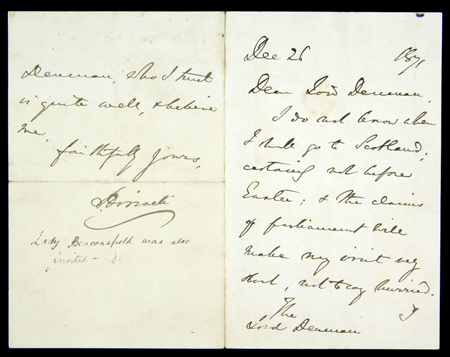 Dec 26 1871
Dear Lord Denman,
I do not know when
I shall go to Scotland;
certainly not before
Easter; & the claims
of parliament will
make my visit very
short, not to say hurried.
The
Lord Denman
Denman, who I trust
is quite well, & believe
me,
faithfully yours,
Disraeli
Lady Beaconsfield was also
invited – D.